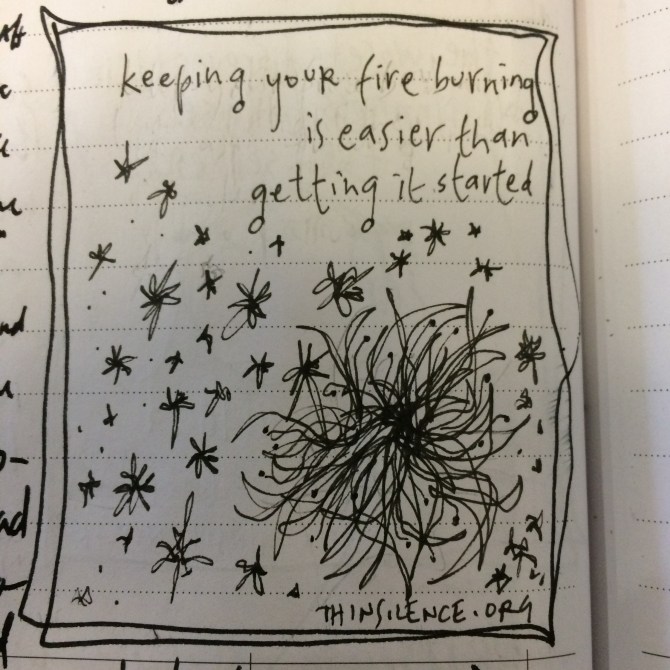 keeping your fire burning
is easier than
getting it started
THINSILENCE.ORG